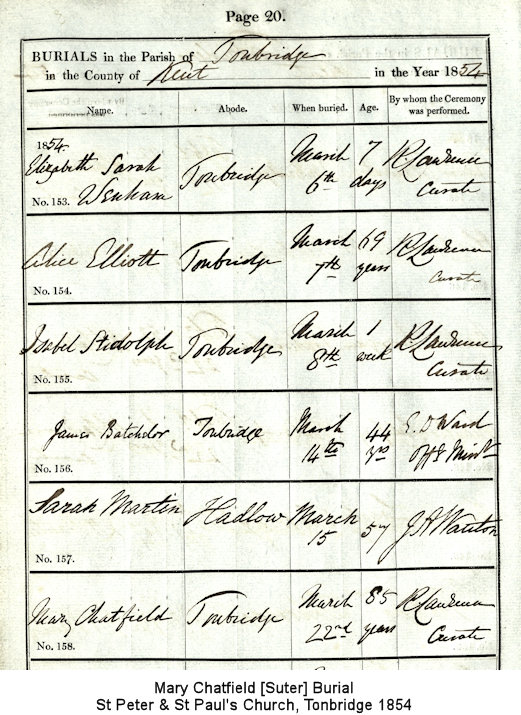 Page 20.
BURIALS in the Parish of Tonbridge
in the County of Kent in the Year 1854
Name. Abode. When buried. Age. By whom the Ceremony was performed.
1854.
Elizabeth Sarah Wenham Tonbridge March 6th 7 days R Lawrence Curate
No. 153.
Alice Elliott Tonbridge March 7th 69 years R Lawrence Curate
No. 154.
Isabel Stidolph Tonbridge March 8th 1 week R Lawrence Curate
No. 155.
James Batchelor Tonbridge March 14th 44 yrs E. D Ward Offg Minr
No. 156.
Sarah Martin Hadlow March 15 57
No. 157.
Mary Chatfield Tonbridge March 22nd 85 years R Lawrence Curate
No. 158.
Mary Chatfield [Suter] Burial
St Peter & St Paul's Church, Tonbridge 1854